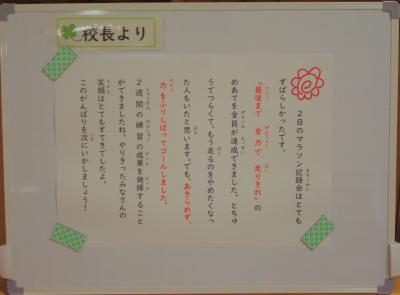 校長より
２日のマラソン記録会はとても
すばらしかったです。
「最後まで　全力で　走りきれ」の
めあてを全員が達成できました。とちゅ
うでつらくて、もう走るのをやめたくなっ
た人もいたと思います。でも、あきらめず、
力をふりしぼってゴールしました。
２週間の練習の成果を発揮すること
ができましたね。やりきったみなさんの
笑顔はとてもすてきでしたよ。
このがんばりを次にいかしましょう！